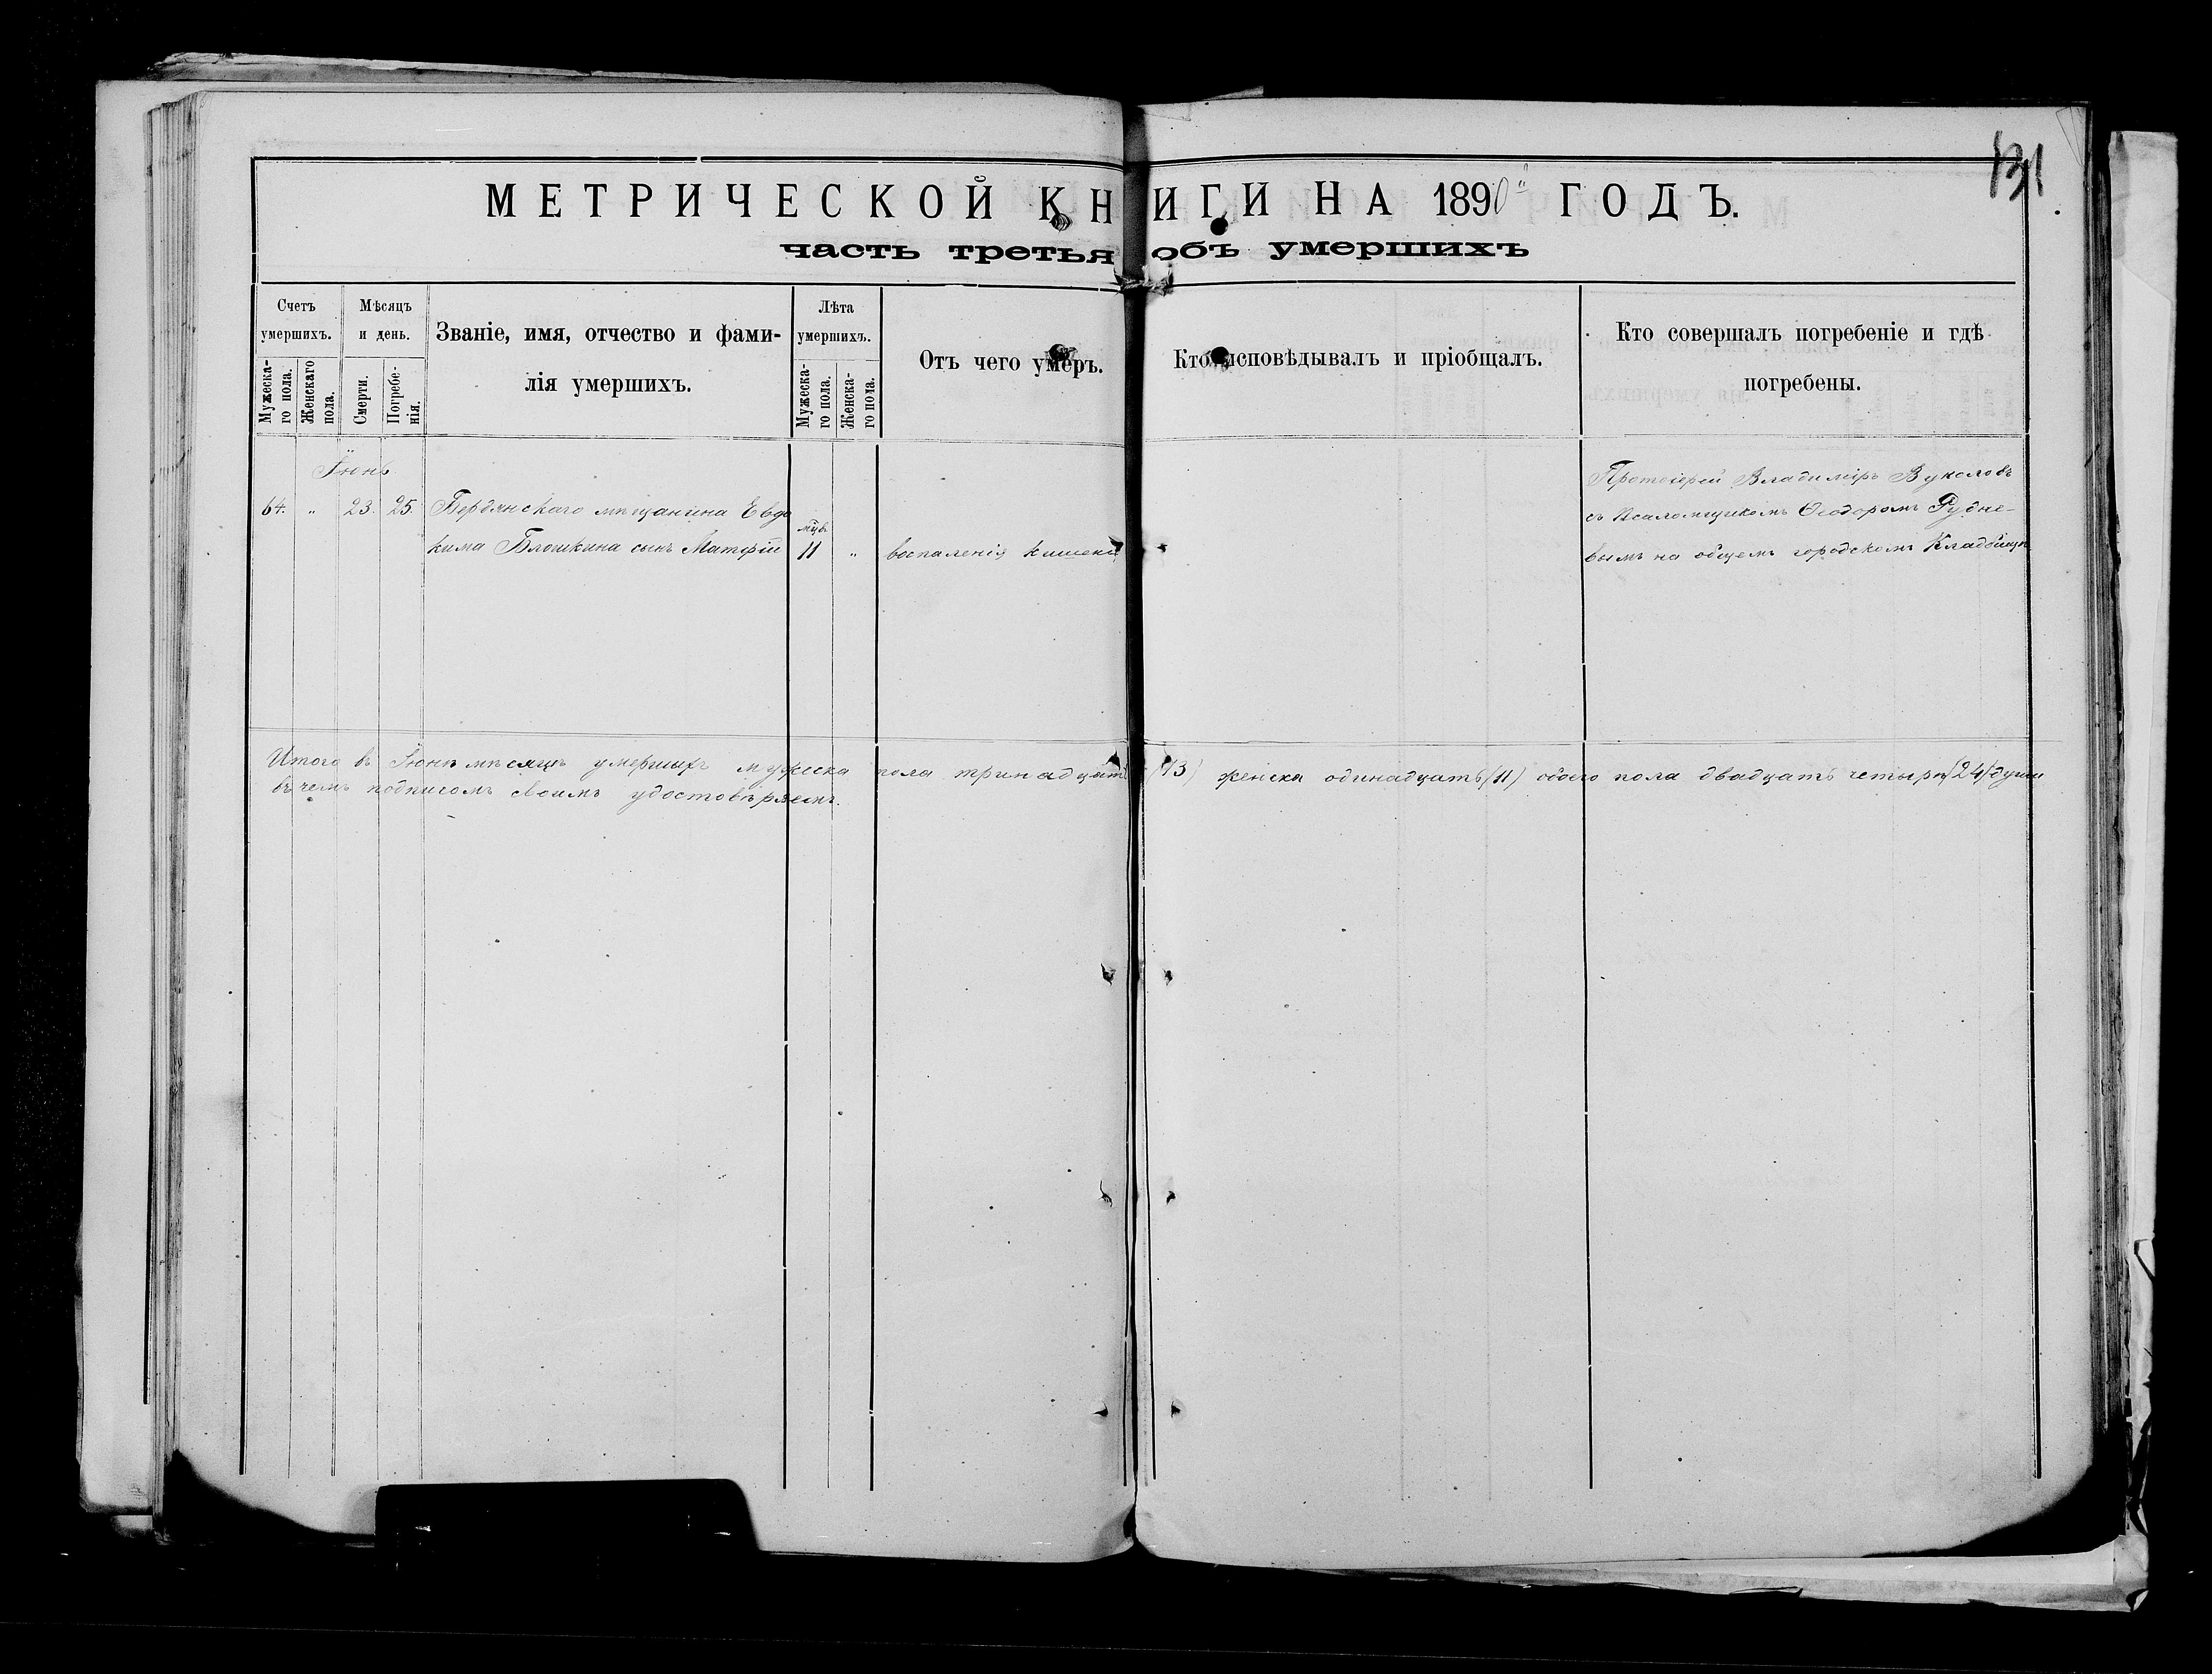 131
МЕТРИЧЕСКОЙ КНИГИ НА 1890й ГОДЪ.
часть третья объ умершихъ
Счетъ умершихъ.
Мужеска-
го пола.
Женскаго
пола.
Мѣсяцъ
и день.
Смерти.
Погребе-
нія.
Званіе, имя, отчество и фами-
лія умершихъ.
Лѣта
умершихъ.
Мужеска-
го пола.
Женска-
го пола.
Отъ чего умеръ.
Кто исповѣдывалъ и пріобщалъ.
Кто совершалъ погребеніе и гдѣ
погребены.
Іюнь
64. „ 23. 25. Бердянскаго мѣщанина Евдо
кима Блошкина сынъ
мцв.
11 „ воспаленія кишекъ
Протоіерей Владиміръ Вуколовъ
съ Псаломщикомъ Ѳеодоромъ Рудне-
вымъ на общемъ городскомъ Кладбищѣ
Итого въ Іюнѣ мѣсяцѣ умершихъ мужеска пола тринадцать (13) женска одинадцать (11) обоего пола двадцать четыре (24) души
въ чемъ подписомъ своимъ удостовѣряемъ.